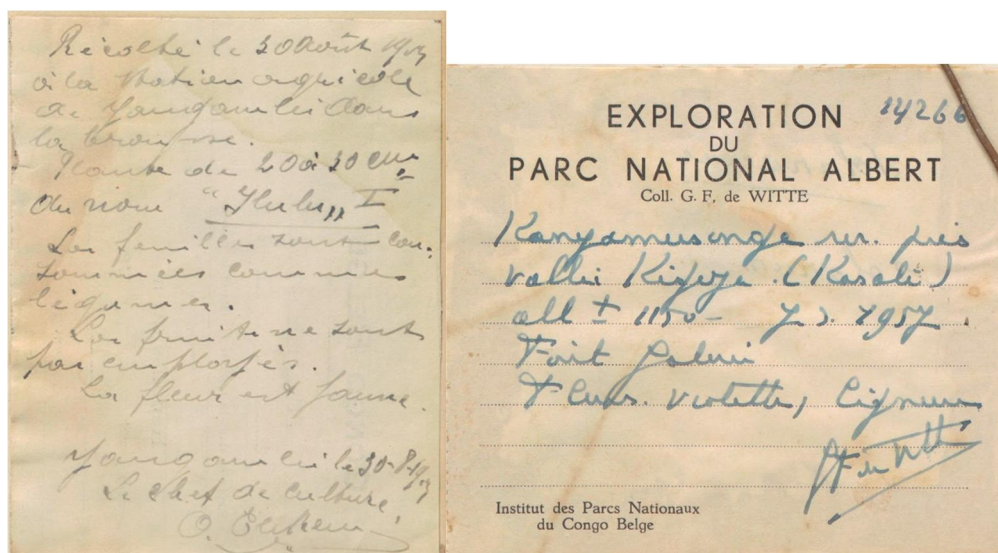 Récolté le 30 Août
à la Station agricole
de Yangambi dans
la brousse.
Plante de 20 à 30 cm
du nom "Ilulu" I
Les feuilles sont con-
sommées comme
légumes.
Les fruits ne sont
pas employés.
La fleur est jaune.
Yangambi le 30-8-
Le chef de culture,
O.
14266
EXPLORATION
DU
PARC NATIONAL ALBERT
Coll. G. F. de WITTE
riv. près
vallée (Kasali)
alt ± 1150- 1957.
Forêt
Fleurs violettes, ligneux
Institut des Parcs Nationaux
du Congo Belge